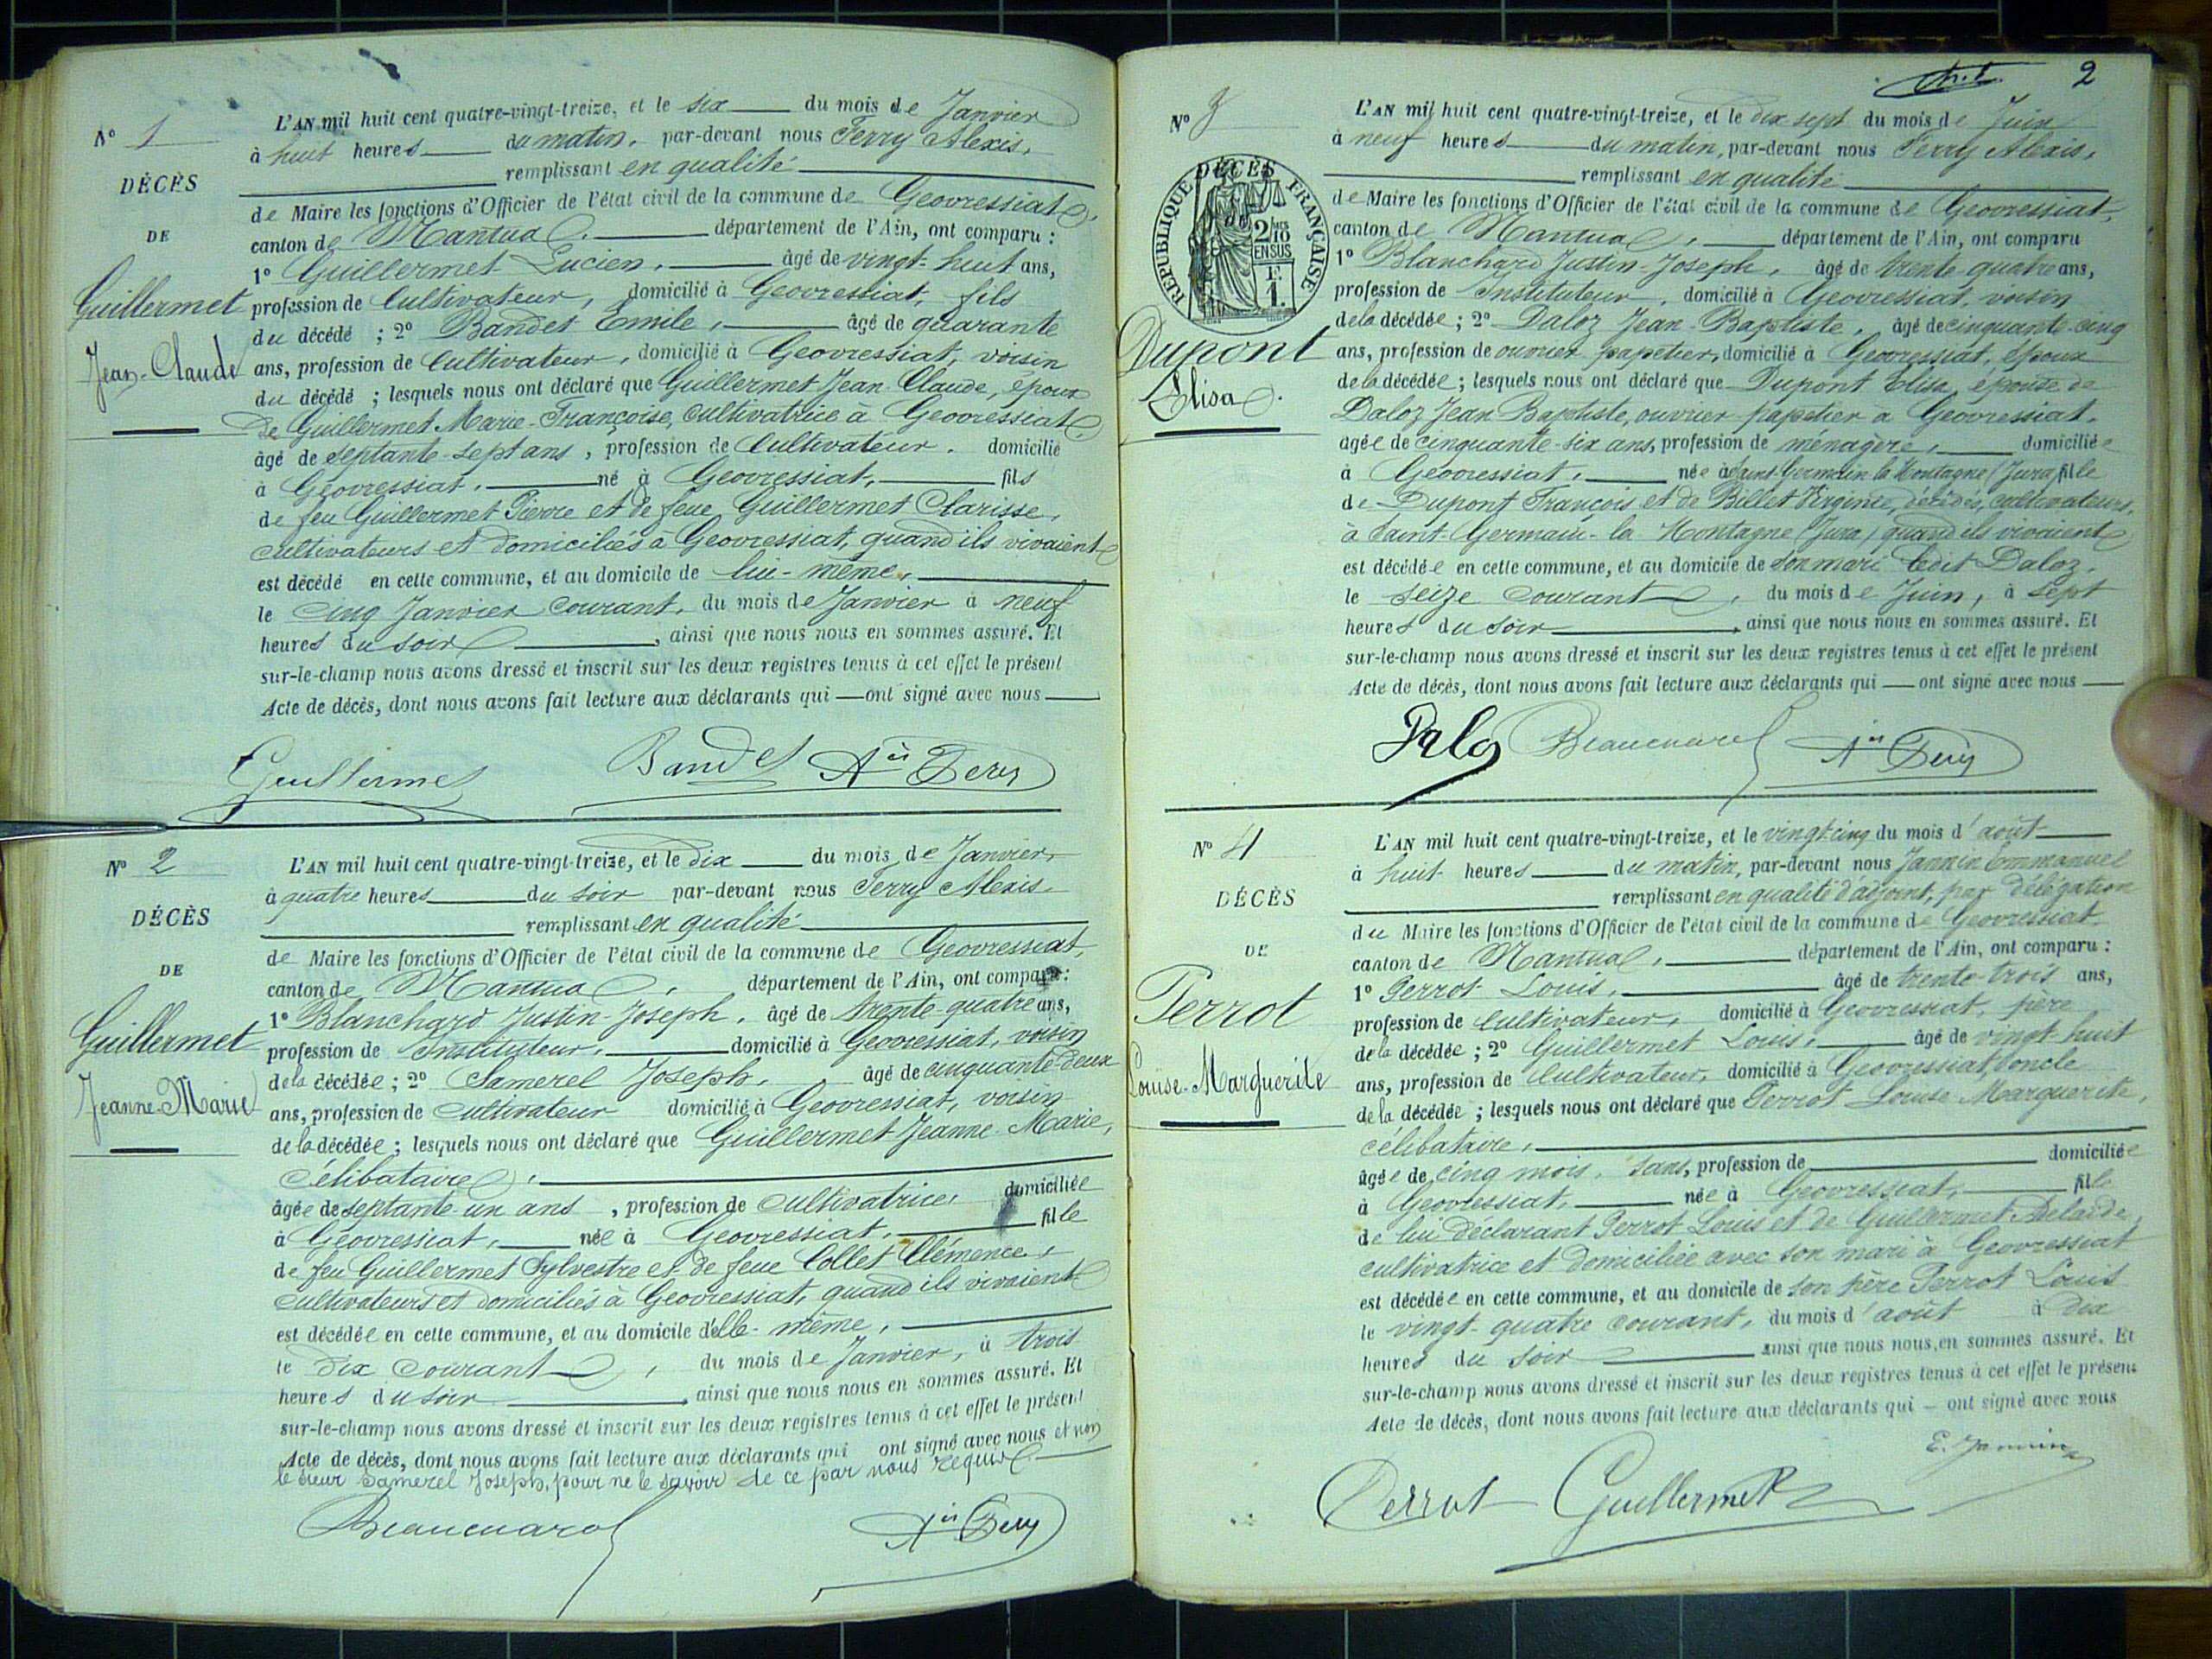 N° 1
DÉCÈS
DE
Guillermet
Jean-Claude
L'AN mil huit cent quatre-vingt-treize, et le six du mois de Janvier
à huit heures du matin, par-devant nous Ferry Alexis,
remplissant en qualité
de Maire les fonctions d'Officier de l'état civil de la commune de Geovressiat,
canton de Nantua département de l'Ain, ont comparu :
1° Guillermet Lucien, âgé de vingt-huit ans,
profession de Cultivateur, domicilié à Geovressiat, fils
du décédé ; 2° Bandet Emile, âgé de quarante
ans, profession de Cultivateur, domicilié à Geovressiat, voisin
du décédé ; lesquels nous ont déclaré que Guillermet Jean-Claude, époux
de Guillermet Marie-Françoise, cultivatrice à Geovressiat
âgé de septante-sept ans, profession de Cultivateur. domicilié
à Geovressiat, né à Geovressiat, fils
de feu Guillermet Pierre et de feue Guillermet Clarisse,
cultivateurs et domiciliés à Geovressiat, quand ils vivaient
est décédé en cette commune, et au domicile de lui-même,
le cinq Janvier courant, du mois de Janvier à neuf
heures du soir, ainsi que nous nous en sommes assuré. Et
sur-le-champ nous avons dressé et inscrit sur les deux registres tenus à cet effet le présent
Acte de décès, dont nous avons fait lecture aux déclarants qui — ont signé avec nous
Guillermet Bandet Ais Ferry
N° 2
DÉCÈS
DE
Guillermet
Jeanne-Marie
L'AN mil huit cent quatre-vingt-treize, et le dix du mois de Janvier,
à quatre heures du soir par-devant nous Ferry Alexis,
remplissant en qualité
de Maire les fonctions d'Officier de l'état civil de la commune de Geovressiat,
canton de Nantua, département de l'Ain, ont comparu :
1° Blanchard Justin-Joseph, âgé de trente-quatre ans,
profession de Instituteur, domicilié à Geovressiat, voisin
de la décédée ; 2° Samerel Joseph, âgé de cinquante-deux
ans, profession de cultivateur domicilié à Geovressiat, voisin
de la décédée ; lesquels nous ont déclaré que Guillermet Jeanne-Marie,
célibataire,
âgée de septante-un ans, profession de cultivatrice, domiciliée
à Geovressiat, née à Geovressiat, fille
de feu Guillermet Sylvestre et de feue Collet Clémence,
cultivateurs et domiciliés à Geovressiat, quand ils vivaient
est décédée en cette commune, et au domicile d'elle-même,
le dix courant, du mois de Janvier, à trois
heures du soir, ainsi que nous nous en sommes assuré. Et
sur-le-champ nous avons dressé et inscrit sur les deux registres tenus à cet effet le présent
Acte de décès, dont nous avons fait lecture aux déclarants qui ont signé avec nous et non
le sieur Samerel Joseph, pour ne le savoir de ce par nous requis
Blanchard Ais Ferry
2
N° 3
DÉCÈS
RÉPUBLIQUE FRANÇAISE
2/10 EN SUS
Dupont
Elisa
L'AN mil huit cent quatre-vingt-treize, et le dix sept du mois de Juin
à neuf heures du matin, par-devant nous Ferry Alexis,
remplissant en qualité
de Maire les fonctions d'Officier de l'état civil de la commune de Geovressiat,
canton de Nantua, département de l'Ain, ont comparu
1° Blanchard Justin-Joseph, âgé de trente-quatre ans,
profession de Instituteur, domicilié à Geovressiat, voisin
de la décédée ; 2° Daloz Jean-Baptiste, âgé de cinquante-cinq
ans, profession de ouvrier-papetier, domicilié à Geovressiat, époux
de la décédée ; lesquels nous ont déclaré que Dupont Elisa, épouse de
Daloz Jean Baptiste, ouvrier-papetier à Geovressiat,
âgée de cinquante-six ans, profession de ménagère, domiciliée
à Geovressiat, née à Saint-Germain la Montagne (Jura) fille
de Dupont François et de Billet Virginie, décédés, cultivateurs,
à Saint-Germain-la-Montagne (Jura) quand ils vivaient
est décédée en cette commune, et au domicile de son mari ledit Daloz,
le seize courant, du mois de Juin, à sept
heures du soir, ainsi que nous nous en sommes assuré. Et
sur-le-champ nous avons dressé et inscrit sur les deux registres tenus à cet effet le présent
Acte de décès, dont nous avons fait lecture aux déclarants qui — ont signé avec nous
Daloz Blanchard Ais Ferry
N° 4
DÉCÈS
DE
Perrot
Louise-Marguerite
L'AN mil huit cent quatre-vingt-treize, et le vingt-cinq du mois d'août
à huit heures du matin, par-devant nous Jannin Emmanuel
remplissant en qualité d'adjoint, par délégation
du Maire les fonctions d'Officier de l'état civil de la commune de Geovressiat
canton de Nantua, département de l'Ain, ont comparu :
1° Perrot Louis, âgé de trente-trois ans,
profession de Cultivateur, domicilié à Geovressiat, père
de la décédée ; 2° Guillermet Louis, âgé de vingt-huit
ans, profession de Cultivateur, domicilié à Geovressiat, oncle
de la décédée ; lesquels nous ont déclaré que Perrot Louise Marguerite,
célibataire,
âgée de cinq mois, sans, profession de domiciliée
à Geovressiat, née à Geovressiat, fille
de lui déclarant Perrot Louis et de Guillermet Adelaïde,
cultivatrice et domiciliée avec son mari à Geovressiat
est décédée en cette commune, et au domicile de son père Perrot Louis
le vingt-quatre courant, du mois d'août à dix
heures du soir ainsi que nous nous en sommes assuré. Et
sur-le-champ nous avons dressé et inscrit sur les deux registres tenus à cet effet le présent
Acte de décès, dont nous avons fait lecture aux déclarants qui — ont signé avec nous
E. Jannin
Perrot Guillermet